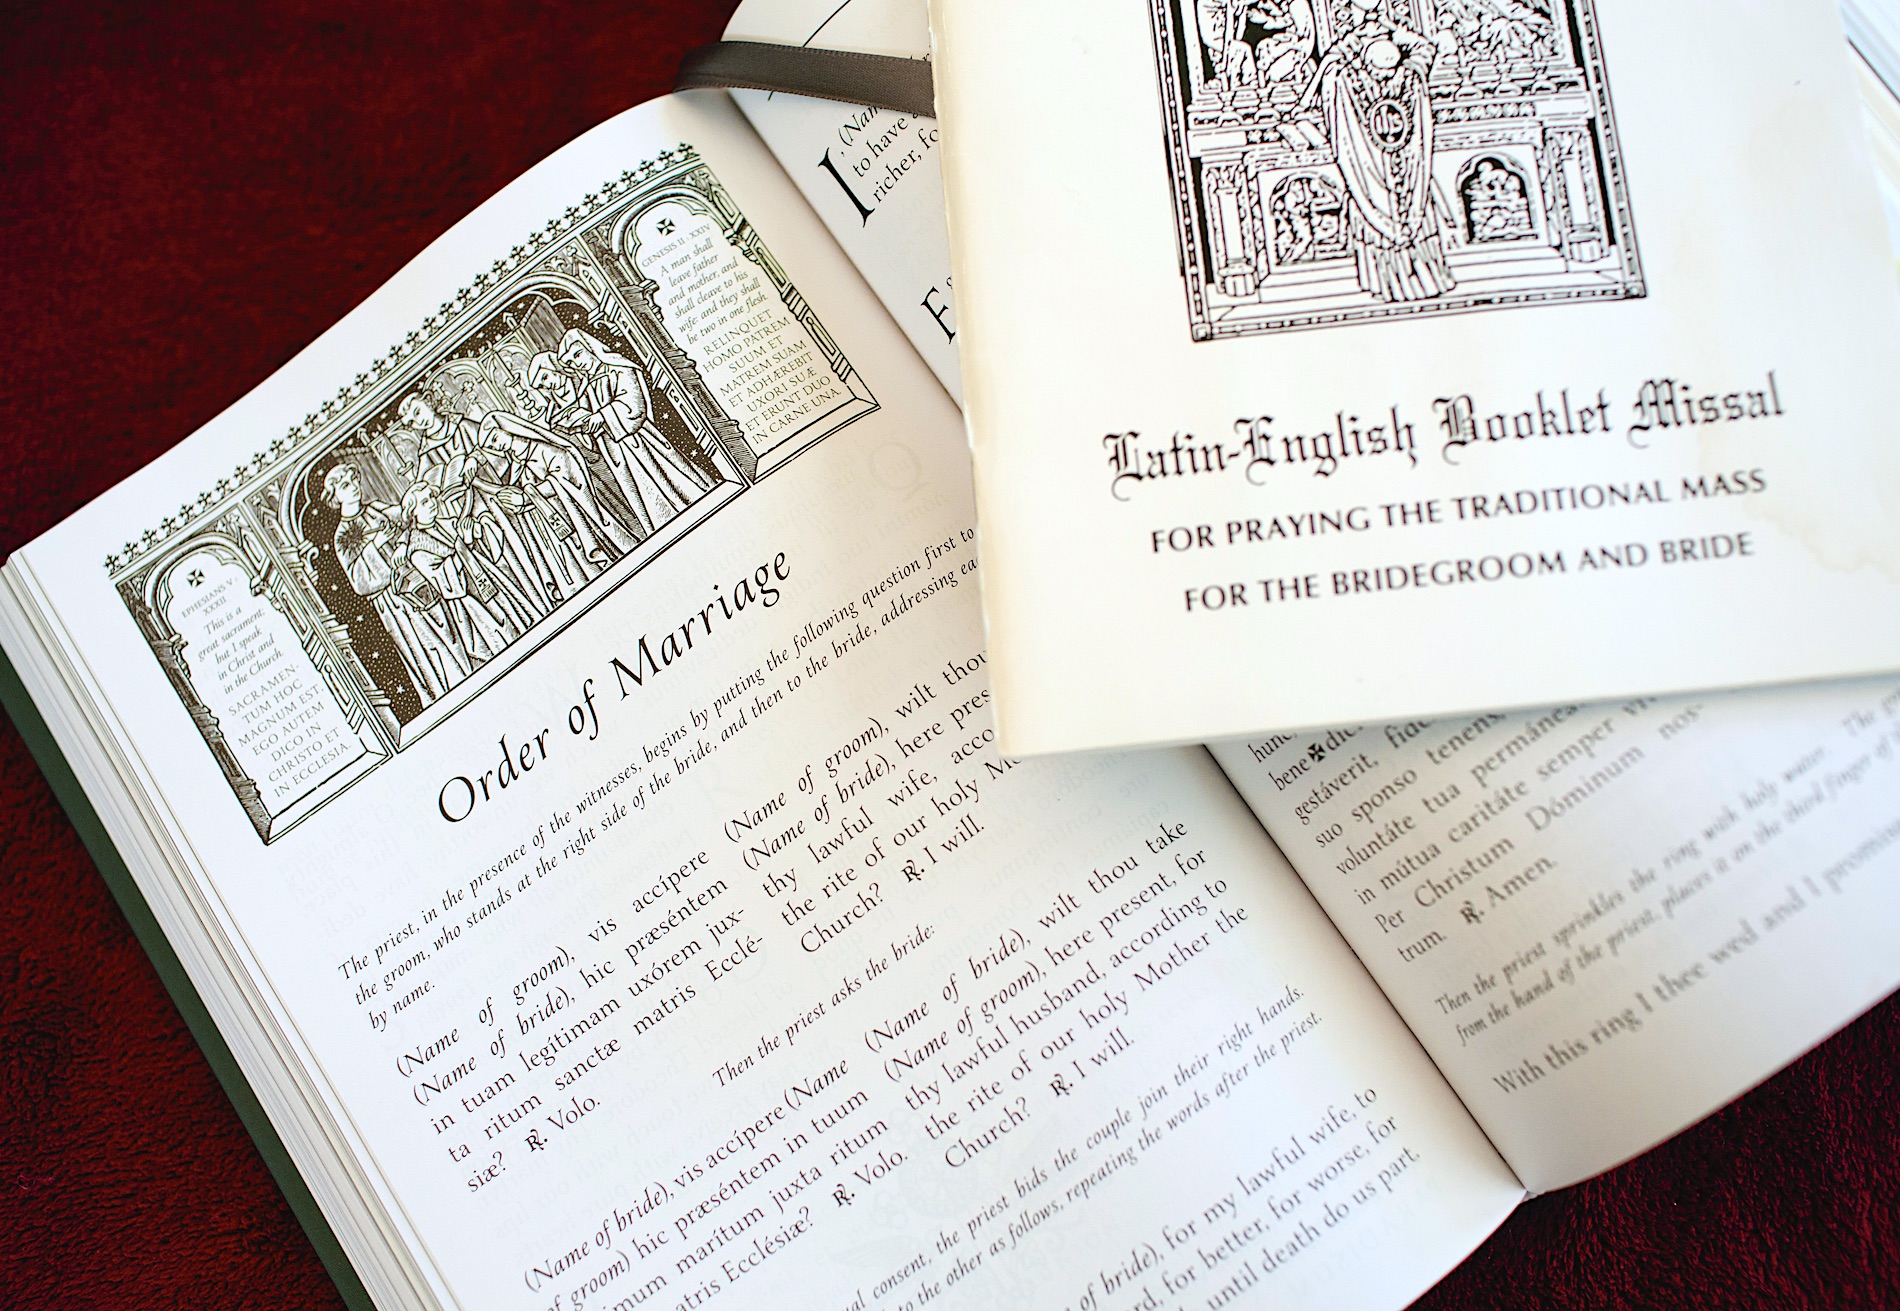 EPHESIANS V :
XXXII
This is a
great sacrament:
but I speak
in Christ and
in the Church.
SACRAMEN-
TUM HOC
MAGNUM EST,
EGO AUTEM
DICO IN
CHRISTO ET
IN ECCLESIA.
GENESIS II : XXIV
A man shall
leave father
and mother, and
shall cleave to his
wife: and they shall
be two in one flesh.
RELINQUET
HOMO PATREM
SUUM ET
MATREM SUAM
ET ADHÆREBIT
UXORI SUÆ
ET ERUNT DUO
IN CARNE UNA
Order of Marriage
The priest, in the presence of the witnesses, begins by putting the following question first to
the groom, who stands at the right side of the bride, and then to the bride, addressing
by name.
(Name of groom), vis accípere
(Name of bride), hic præséntem
in tuam legítimam uxórem jux-
ta ritum sanctæ matris Ecclé-
siæ? ℟. Volo.
(Name of groom), wilt thou
(Name of bride), here
thy lawful wife,
the rite of our holy
Church? ℟. I will.
Then the priest asks the bride:
(Name of bride), vis accípere (Name
of groom) hic præséntem in tuum
marítum juxta ritum
Ecclésiæ? ℟. Volo.
(Name of bride), wilt thou take
(Name of groom), here present, for
thy lawful husband, according to
the rite of our holy Mother the
Church? ℟. I will.
consent, the priest bids the couple join their right hands.
to the other as follows, repeating the words after the priest.
of bride), for my lawful wife, to
for better, for worse, for
until death do us part.
I,
to have
richer,
Latin-English Booklet Missal
FOR PRAYING THE TRADITIONAL MASS
FOR THE BRIDEGROOM AND BRIDE
bene✠
gestáverit,
suo sponso tenens,
voluntáte tua
in mútua caritáte semper
Per Christum Dóminum nos-
trum. ℟. Amen.
Then the priest sprinkles the ring with holy water. The
from the hand of the priest, places it on the third finger of
With this ring I thee wed and I